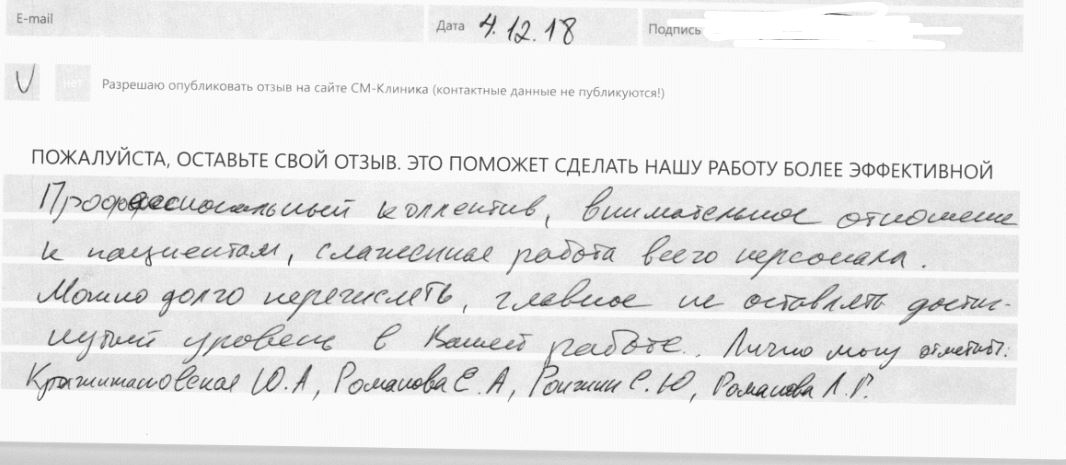 E-mail
Дата 4.12.18 Подпись
V нет Разрешаю опубликовать отзыв на сайте СМ-Клиника (контактные данные не публикуются!)
ПОЖАЛУЙСТА, ОСТАВЬТЕ СВОЙ ОТЗЫВ. ЭТО ПОМОЖЕТ СДЕЛАТЬ НАШУ РАБОТУ БОЛЕЕ ЭФФЕКТИВНОЙ
Профессиональный коллектив, внимательное отношение
к пациентам, слаженная работа всего персонала.
Можно долго перечислять, главное не оставлять достиг-
нутый уровень в Вашей работе. Лично могу отметить:
Кржижановская Ю.А, Романова Е.А, Ю, Романова Л.Г.